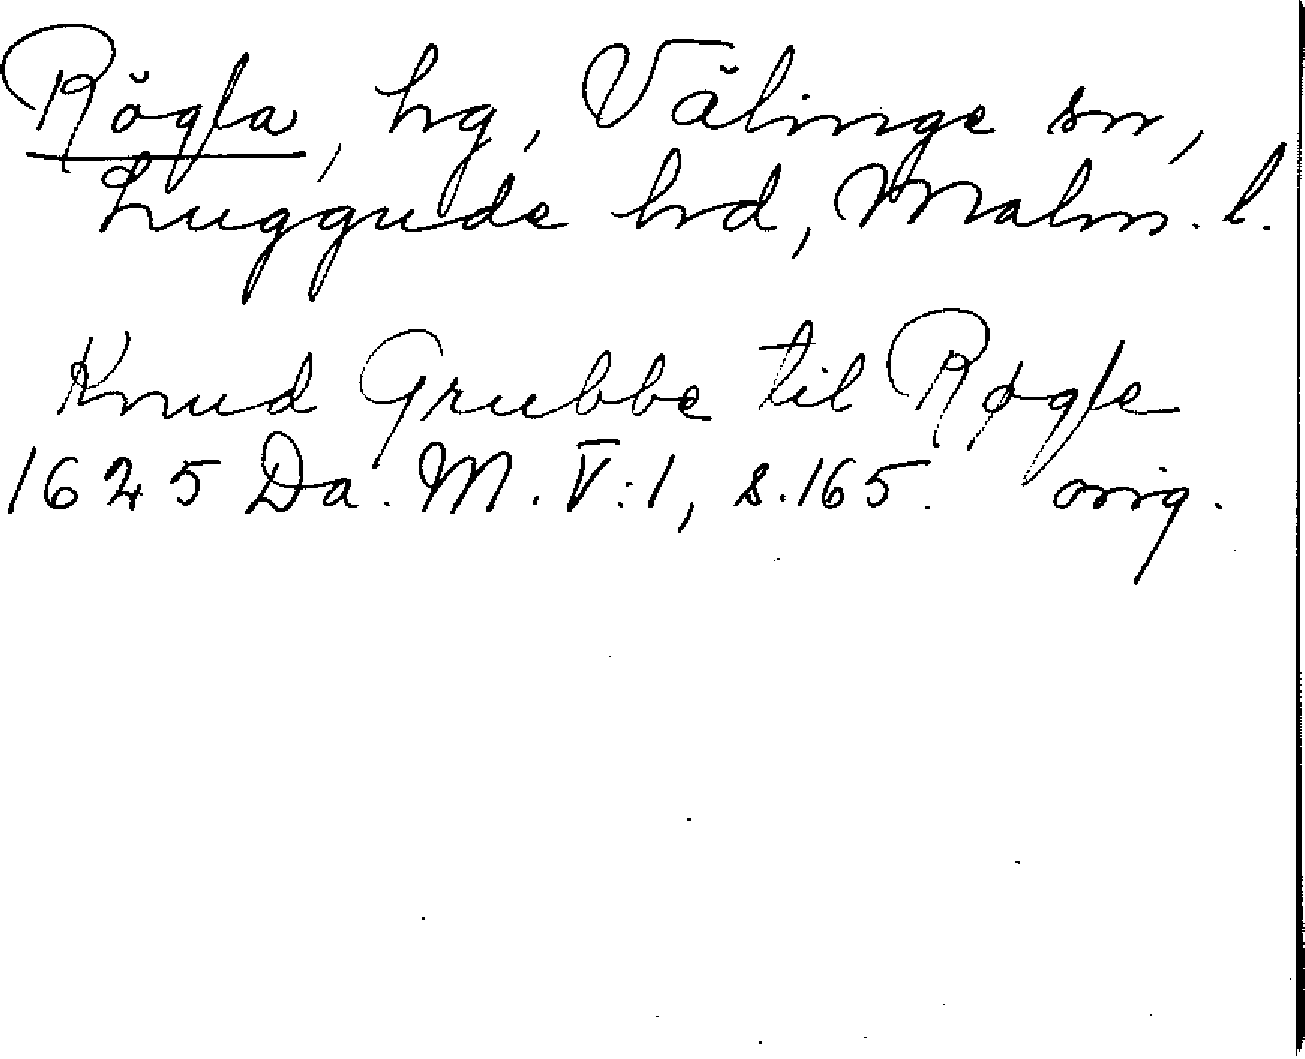 Rögla, hg, Välinge sn,
Luggude hd, Malm. l.
Knud Grubbe til Røgle
1625 Da. M. V:1, s. 165. orig.